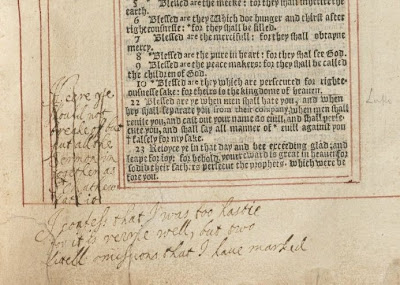 5 * Blessed are the meeke: for they shall inherite the
earth.
6 Blessed are they which doe hunger and thirst after
righteousnesse: * for they shall be filled.
7 Blessed are the mercifull: for they shall obtayne
mercy.
8 * Blessed are the pure in heart: for they shal see God.
9 Blessed are the peace makers: for they shall be called
the children of God.
10 * Blessed are they which are persecuted for righte-
ousnesse sake: for theirs is the kingdome of heauen.
22 Blessed are ye when men shall hate you, and when
they shall separate you from their company, when men shall
reuile you, and call out your name as euill, and shall perse-
cute you, and shall say all maner of * euill against you
falsely for my sake.
23 Reioyce ye in that day and bee exceeding glad, and
leape for ioy: for behold, your reward is great in heauen: for
so did their fathers persecute the prophets, which were be
fore you.
should not
breake of the
but all
together as
I confess that I was too hastie
for it is verrie well, but two
litell omissions that I have marked